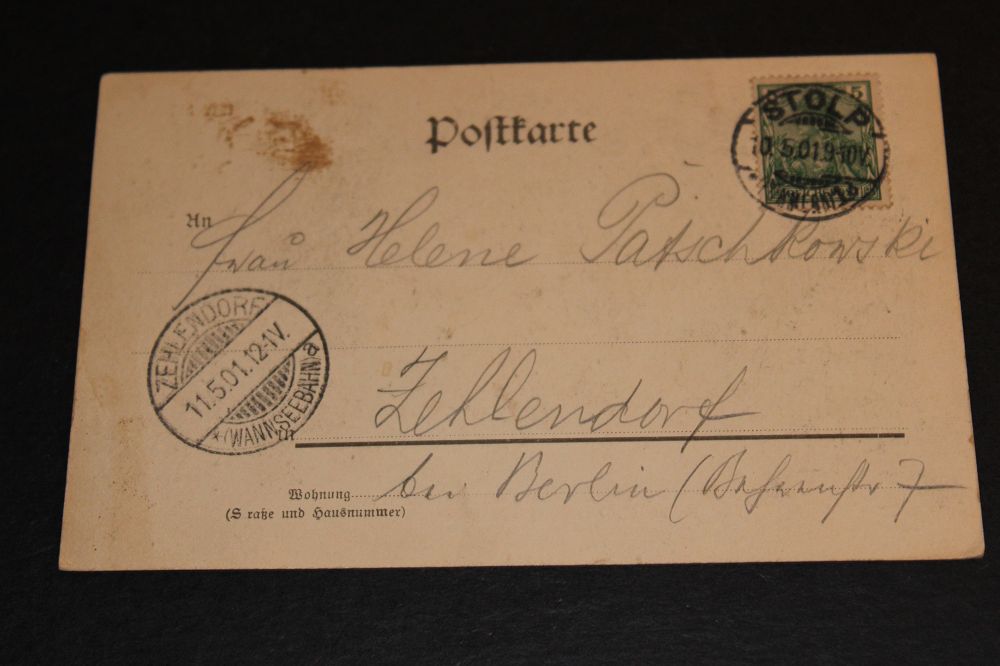 Postkarte
5
STOLP
10.5.01.9-10V.
An
Frau Helene Patschkowski
ZEHLENDORF
11.5.01.12-1V.
*(WANNSEEBAHN)a
in
Zehlendorf
Wohnung
bei Berlin (
(S raße und Hausnummer)